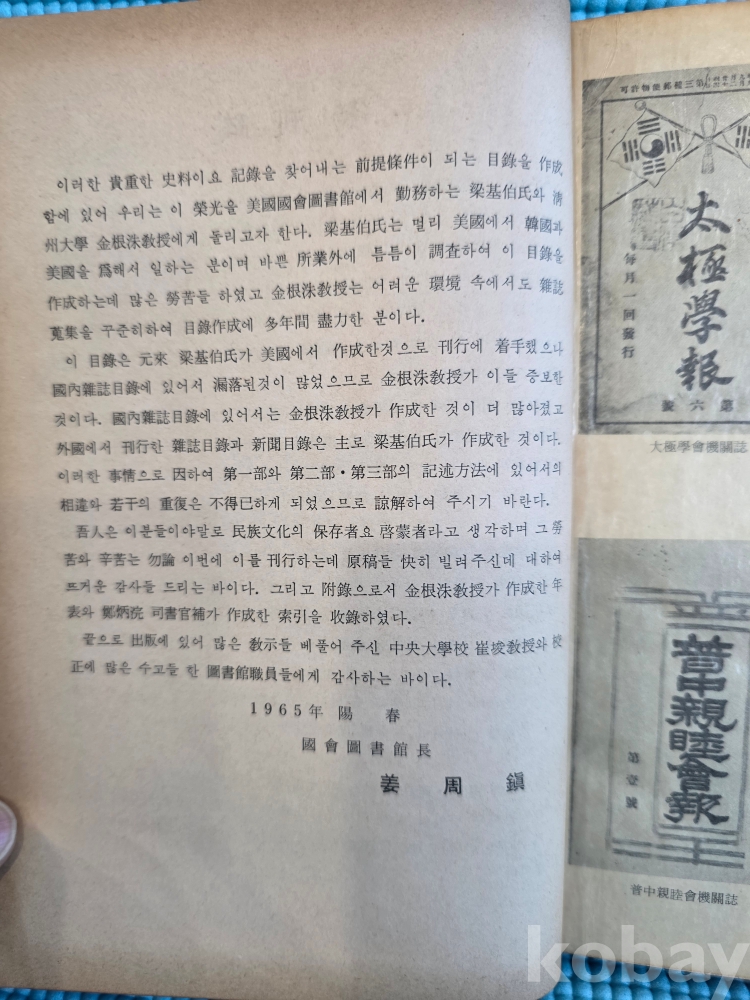 이러한 貴重한 史料이요 記錄을 찾어내는 前提條件이 되는 目錄을 作成
함에 있어 우리는 이 榮光을 美國國會圖書館에서 勤務하는 梁基伯氏와 淸
州大學 金根洙敎授에게 돌리고자 한다. 梁基伯氏는 멀리 美國에서 韓國과
美國을 爲해서 일하는 분이며 바쁜 所業外에 틈틈이 調査하여 이 目錄을
作成하는데 많은 勞苦들 하였고 金根洙敎授는 어려운 環境 속에서도 雜誌
蒐集을 꾸준히하여 目錄作成에 多年間 盡力한 분이다.
이 目錄은 元來 梁基伯氏가 美國에서 作成한것으로 刊行에 着手했으나
國內雜誌目錄에 있어서 漏落된것이 많었으므로 金根洙敎授가 이들 증보한
것이다. 國內雜誌目錄에 있어서는 金根洙敎授가 作成한 것이 더 많아졌고
外國에서 刊行한 雜誌目錄과 新聞目錄은 主로 梁基伯氏가 作成한 것이다.
이러한 事情으로 因하여 第一部와 第二部·第三部의 記述方法에 있어서의
相違와 若干의 重復은 不得已하게 되었으므로 諒解하여 주시기 바란다.
吾人은 이분들이야말로 民族文化의 保存者요 啓蒙者라고 생각하며 그 勞
苦와 辛苦는 勿論 이번에 이를 刊行하는데 原稿들 快히 빌려주신데 대하여
뜨거운 감사들 드리는 바이다. 그리고 附錄으로서 金根洙敎授가 作成한 年
表와 鄭炳浣 司書官補가 作成한 索引을 收錄하였다.
끝으로 出版에 있어 많은 敎示들 베풀어 주신 中央大學校 崔埈敎授와 校
正에 많은 수고들 한 圖書館職員들에게 감사하는 바이다.
1965年 陽 春
國會圖書館長
姜 周 鎭
可許物便郵種三第
太極學報
每月一回發行
第六號
太極學會機關誌
普中親睦會報
第壹號
普中親睦會機關誌
kobay